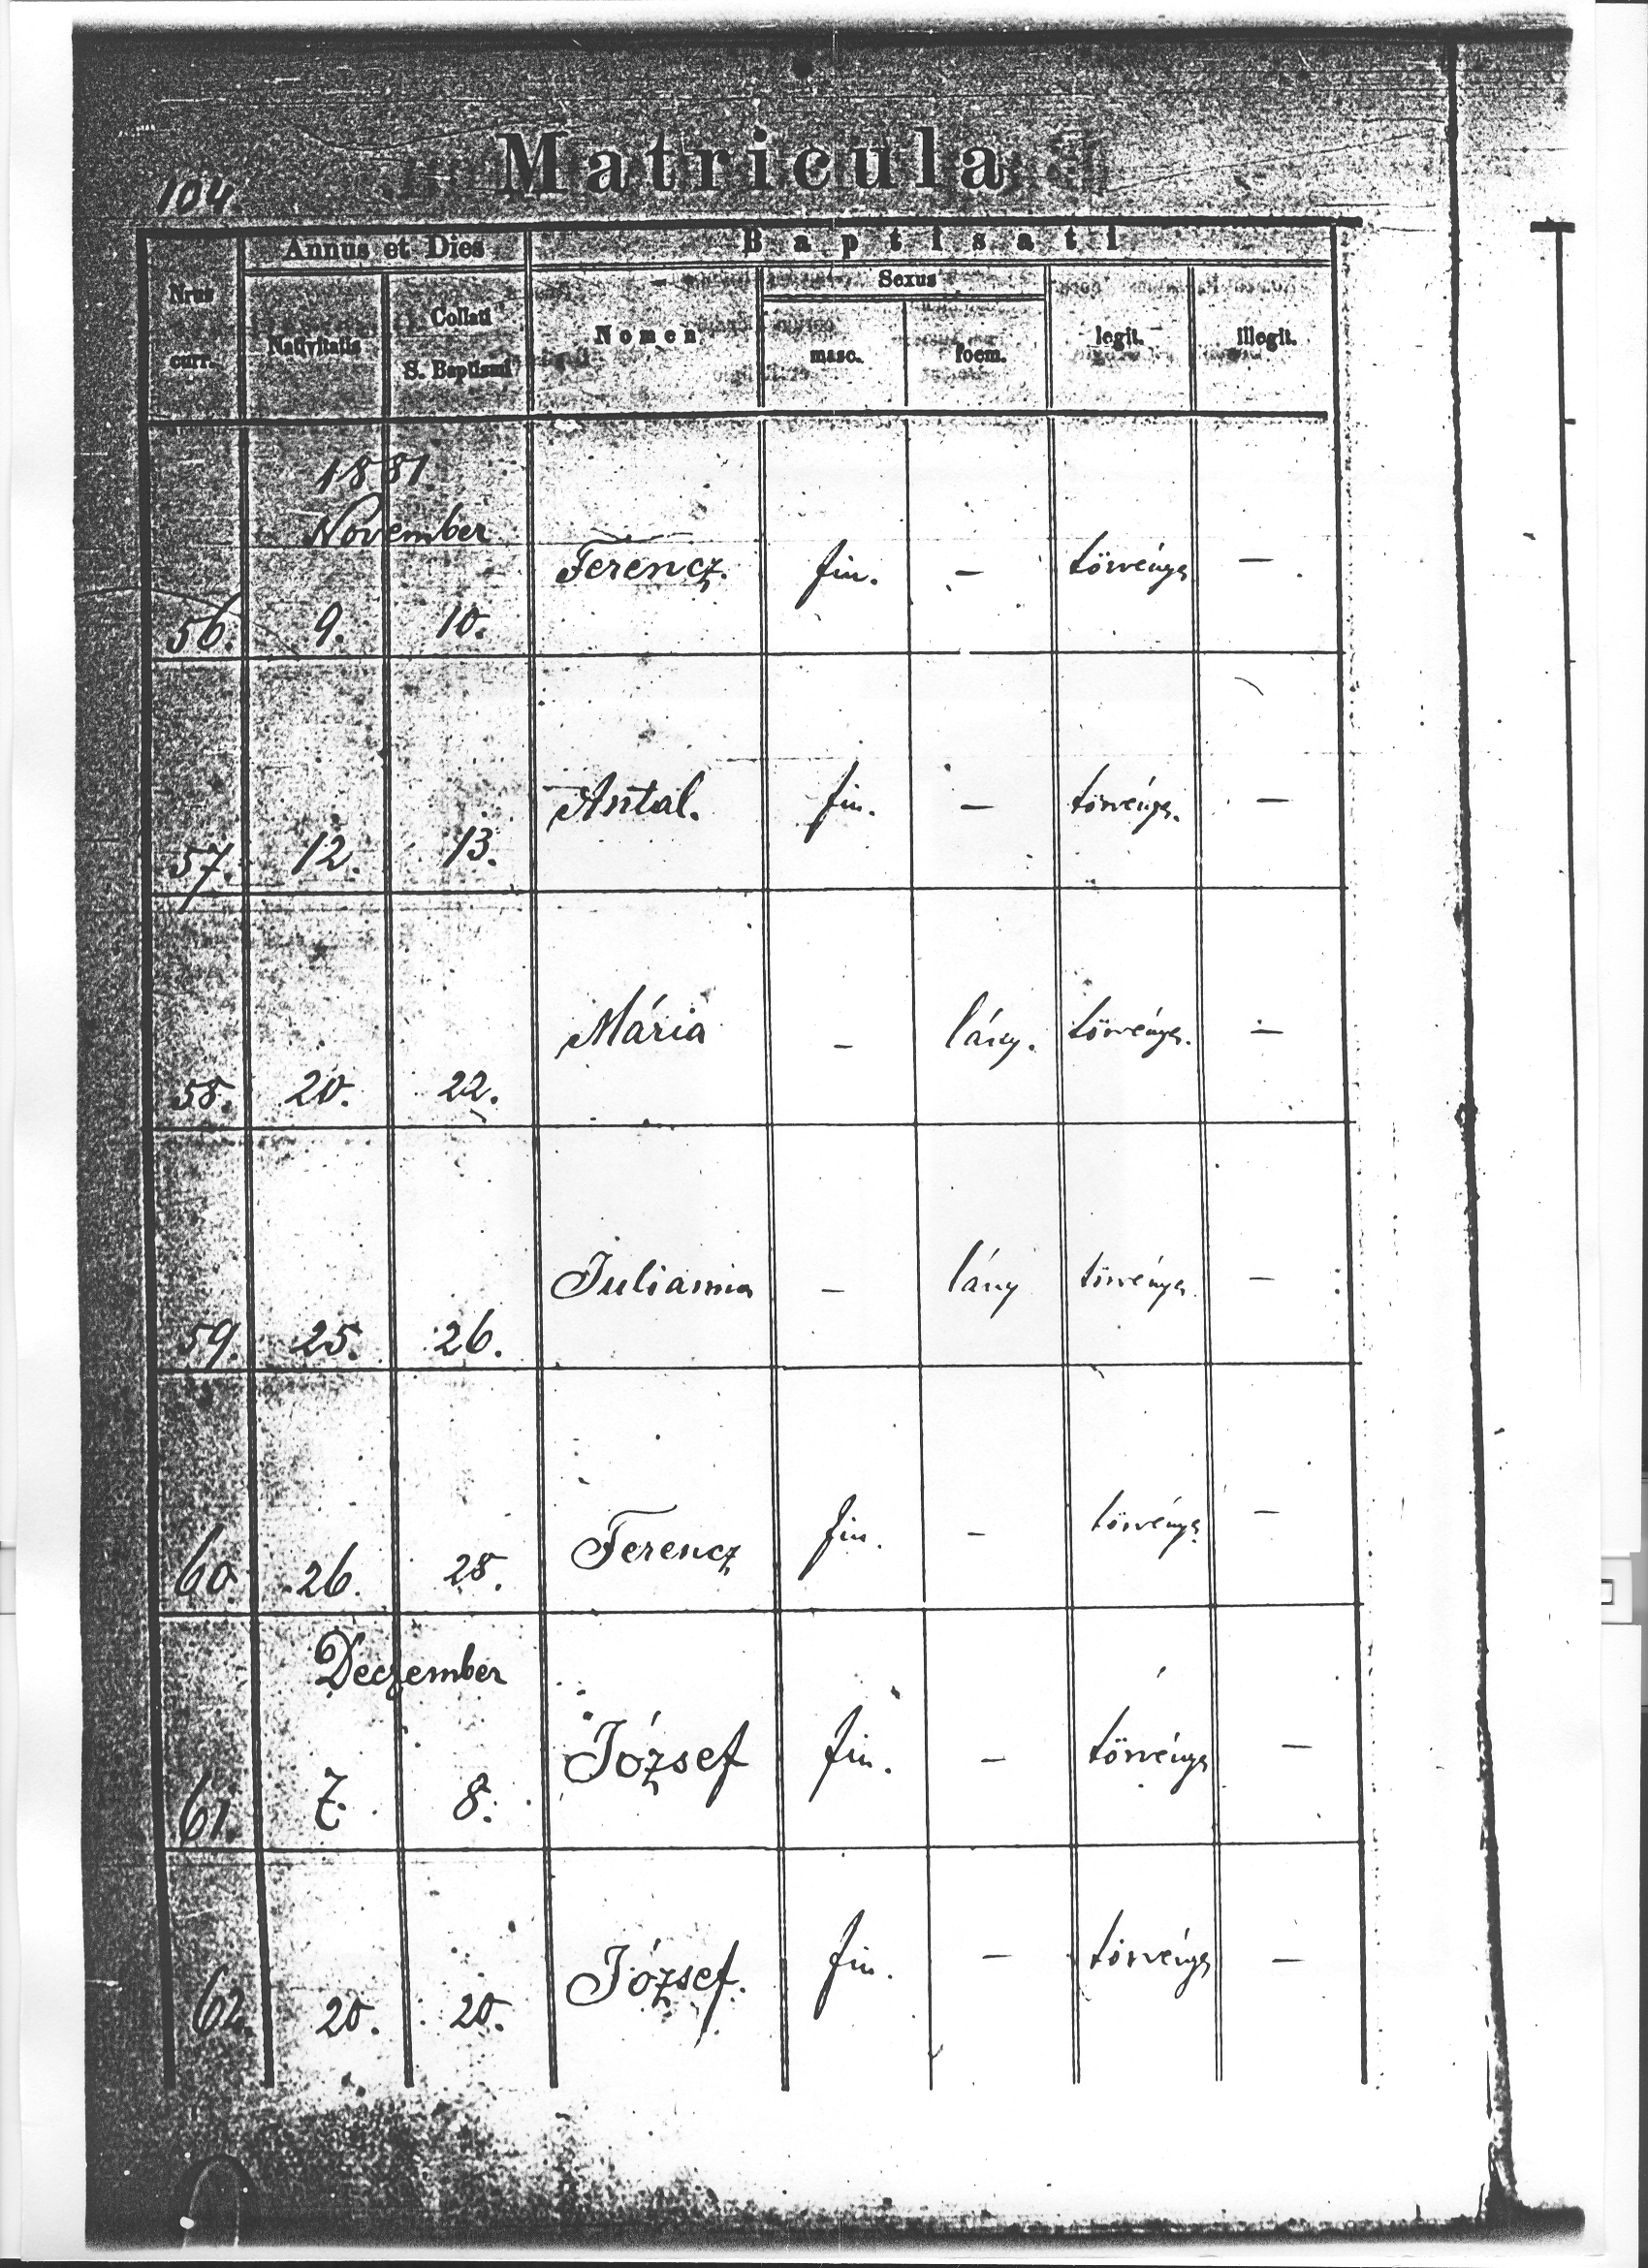 104
Matricula
Annus et Dies
Baptisati
Nrus curr.
Nativitatis
Collati S. Baptismi
Nomen
Sexus
masc.
foem.
legit.
illegit.
1881.
November
56. 9. 10. Ferencz. fiu. – törvényes –
57. 12. 13. Antal. fiu. – törvényes. –
58. 20. 22. Mária – lány. törvényes. –
59. 25. 26. Julianna – lány törvényes –
60 26. 28. Ferencz fiu. – törvényes. –
Deczember
61. 7. 8. József fiu. – törvényes –
62. 20. 20. József. fiu. – törvényes –